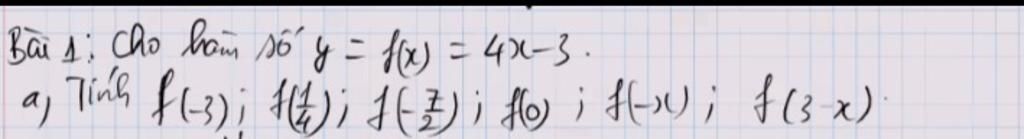 Bài 1: Cho hàm số y = f(x) = 4x-3.
a, Tính f(-3); f(1/4); f(-7/2); f(0); f(-x); f(3-x).